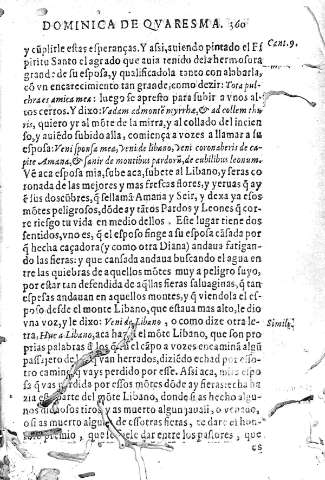 DOMINICA DE QVARESMA. 360
y cũplirle estas esperanças. Y assi, auiendo pintado el Es
piritu Santo el agrado que auia tenido de la hermosura
Cant. 9.
grande de su esposa, y qualificadola tanto con alabarla,
cõ vn encarecimiento tan grande, como dezir: Tota pul-
chra es amica mea: luego se apresto para subir a vnos al-
tos cerros. Y dixo: Vadam ad montẽ myrrhæ, & ad collem thu
ris, quiero yr al mõte de la mirra, y al collado del incien
so, y auiẽdo subido alla, comiença a vozes a llamar a su
esposa: Veni sponsa mea, veni de libano, veni coronaberis de ca-
pite Amana, & sanir de montibus pardorũ, de cubilibus leonum.
Vẽ aca esposa mia, sube aca, subete al Libano, y seras co
ronada de las mejores y mas frescas flores, y yeruas q̃ ay
ẽ sus doscũbres, q̃ sellamã Amana y Seir, y dexa ya essos
mõtes peligrosos, dõde ay tãtos Pardos y Leones q̃ cor-
re riesgo tu vida en medio dellos. Este lugar tiene dos
sentidos, vno es, q̃ el esposo finge a su esposa cãsada por
q̃ hecha caçadora (y como otra Diana) andaua fatigan-
do las fieras: y que cansada andaua buscando el agua en
tre las quiebras de aquellos mõtes muy a peligro suyo,
por estar tan defendida de aq̃llas fieras saluaginas, q̃ tan
espesas andauan en aquellos montes, y q̃ viendola el es-
poso desde el monte Libano, que estaua mas alto, le dio
vna voz, y le dixo: Veni de Libano, o como dize otra le-
Simile.
tra, Huc a Libano, aca hazia el mõte Libano, que son pro-
prias palabras d los q̃ en el cãpo a vozes encaminã algũ
passajero de los q̃ van herrados, diziẽdo echad por esso-
tro camino, q̃ vays perdido por esse. Assi aca, mira espo
sa q̃ vas perdida por essos mõtes dõde ay fieras: echa ha
zia esta parte del mõte Libano, donde si as hecho algu-
nos dichosos tiros, y as muerto algun jauali, o venado,
o si as muerto alguna de essotras fieras, te dare el hon-
roso premio, que se suele dar entre los pastores, que
es